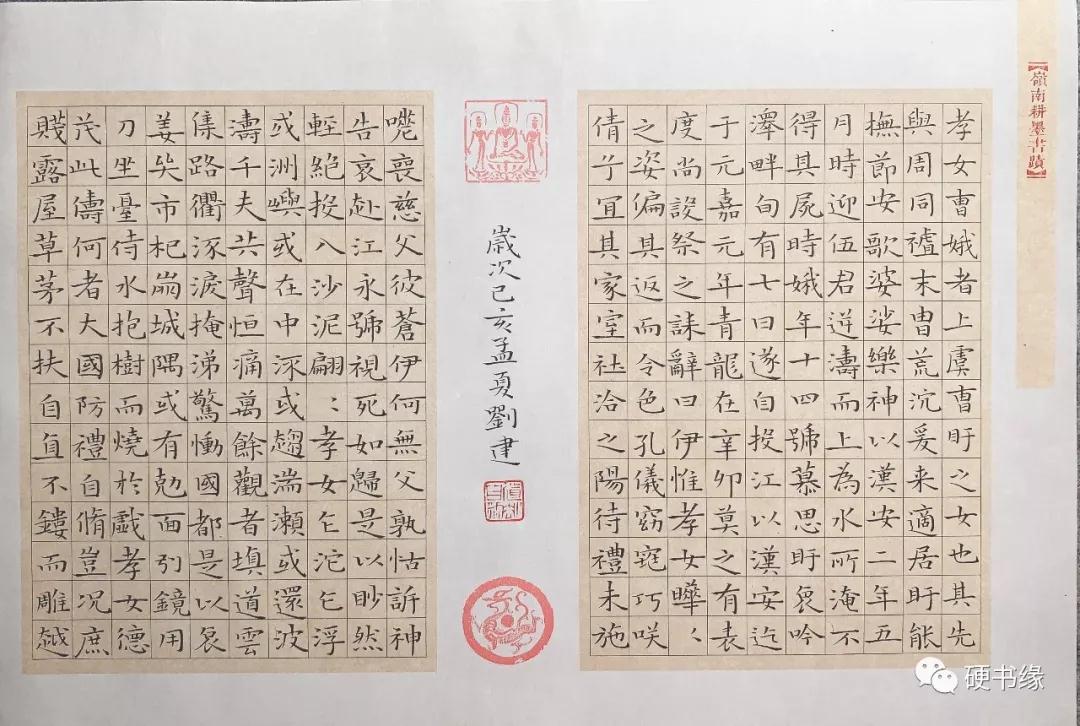 【嶺南耕墨書蹟】
孝女曹娥者上虞曹盱之女也其先
與周同禮末胄荒沉爰来適居盱能
撫節安歌婆娑樂神以漢安二年五
月時迎伍君逆濤而上為水所淹不
得其屍時娥年十四號慕思盱哀吟
澤畔旬有七日遂自投江以漢安迄
于元嘉元年青龍在辛卯莫之有表
度尚設祭之誄辭曰伊惟孝女曄〻
之姿偏其返而令色孔儀窈窕巧咲
倩兮宜其家室在洽之陽待禮未施
歲次己亥孟夏劉建
嗟喪慈父彼蒼伊何無父孰怙訴神
告哀赴江永號視死如歸是以眇然
輕絕投入沙泥翩〻孝女乍沉乍浮
或洲嶼或在中流或趨湍瀨或還波
濤千夫共聲悼痛萬餘觀者填道雲
集路衢流淚掩涕驚慟國都是以哀
姜哭市杞崩城隅或有剋面引鏡用
刀坐臺待水抱樹而燒於戲孝女德
茂此儔何者大國防禮自脩豈况庶
賤露屋草茅不扶自直不鏤而雕越
硬书缘